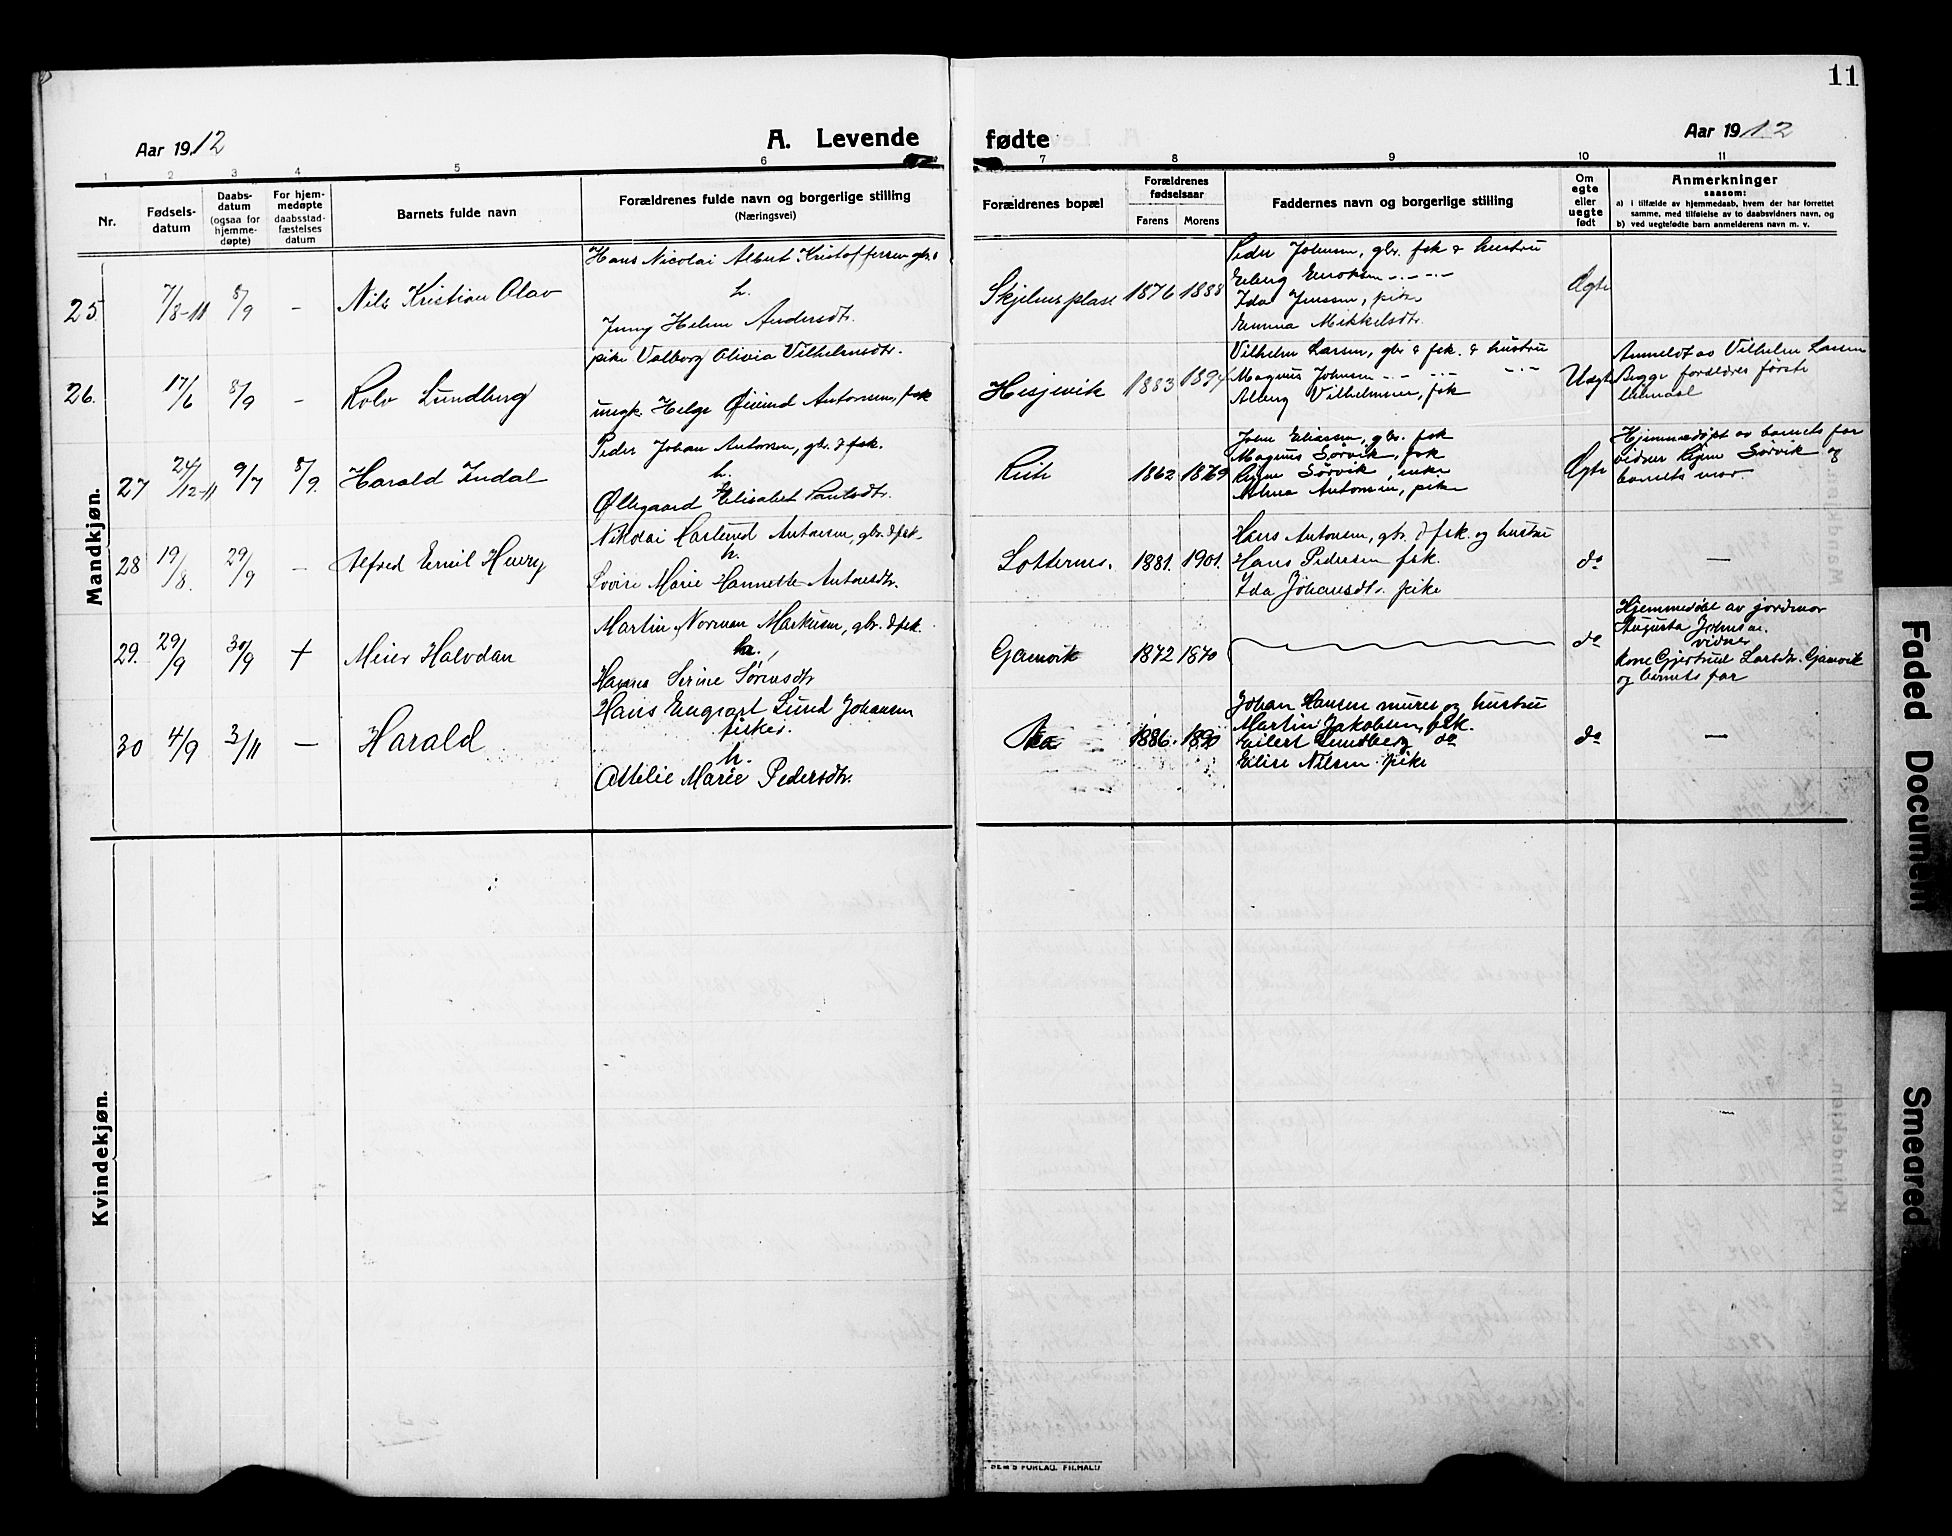 11
Aar 1912
A. Levende
fødte
Aar 1912
1 2 3 4 5 6 7 8 9 10 11
Nr.
Fødsels-
datum
Daabs-
datum
(ogsaa for
hjemme-
døpte)
For hjem-
medøpte
daabsstad-
fæstelses
datum
Barnets fulde navn
Forældrenes fulde navn og borgerlige stilling
(Næringsvei)
Forældrenes bopæl
Forældrenes
fødselsaar
Farens Morens
Faddernes navn og borgerlige stilling
Om
egte
eller
uegte
født
Anmerkninger
saasom:
a) i tilfælde av hjemmedaab, hvem der har forrettet
samme, med tilføielse av to daabsvidners navn, og
b) ved uegtefødte barn anmelderens navn m. v.
Mandkjøn.
25 7/8-11 8/9 – Nils Kristian Olav
Hans Nicolai Albert Kristoffersen gbr.
h.
Jenny Helene Andersdtr.
1876 1888
Peder Johnsen, gbr. fsk & hustru
Ida Jenssen, pike
Emma Mikkelsdtr.
Ægte
26. 17/6 8/9 – Rolv Lundberg
pike Valborg Olivia Vilhelmsdtr.
ungk. Helge Øivind Antonsen, fsk
Hesjevik 1883 1894
Vilhelm Larsen, gbr & fsk. & hustru
Magnus Johnsen
Alberg Vilhelmsen, fsk
Uegte
Anmeldt av Vilhelm Larsen
Begge forældres første
leiermaal
27 24/12-11 9/7 8/9. Harald Indal
Peder Johan Antonsen, gbr. & fsk.
h.
Øllegaard Elisabet Paulsdtr.
1862 1869
John Eliassen, gbr. fsk
Magnus Sørvik, fsk
Sørvik, enke
Alma Antonsen, pike
Ægte
Hjemmedøpt av barnets far
vidner Sørvik og
barnets mor.
28 19/8. 29/9 – Alfred Emil Henry
Nikolai Antonsen, gbr. & fsk.
h.
Marie Hannette
1881. 1901.
Hans Antonsen, gbr. & fsk. og hustru
Hans Pedersen fsk.
Ida Johansdtr. pike
do
—
29. 29/9 30/9 + Meier Halvdan
Martin Norman Markusen, gbr. & fsk.
h.
Hanna Serine Sørensdtr
Gamvik 1872 1870
do
Hjemmedøbt av jordmor
Augusta Johnsen.
vidner
kone Gjertrud Larsdtr. Gamvik
og barnets far
30 4/9 3/11 — Harald
Hans Engvart Lund Johansen
fisker.
h.
Ottilie Marie Pedersdtr.
1886. 1890
Johan Hansen murer og hustru
Martin Jakobsen, fsk.
Eilert Lundberg do
Elise Nilsen pike
do
—
Kvindekjøn.
Faded Document
Smeared